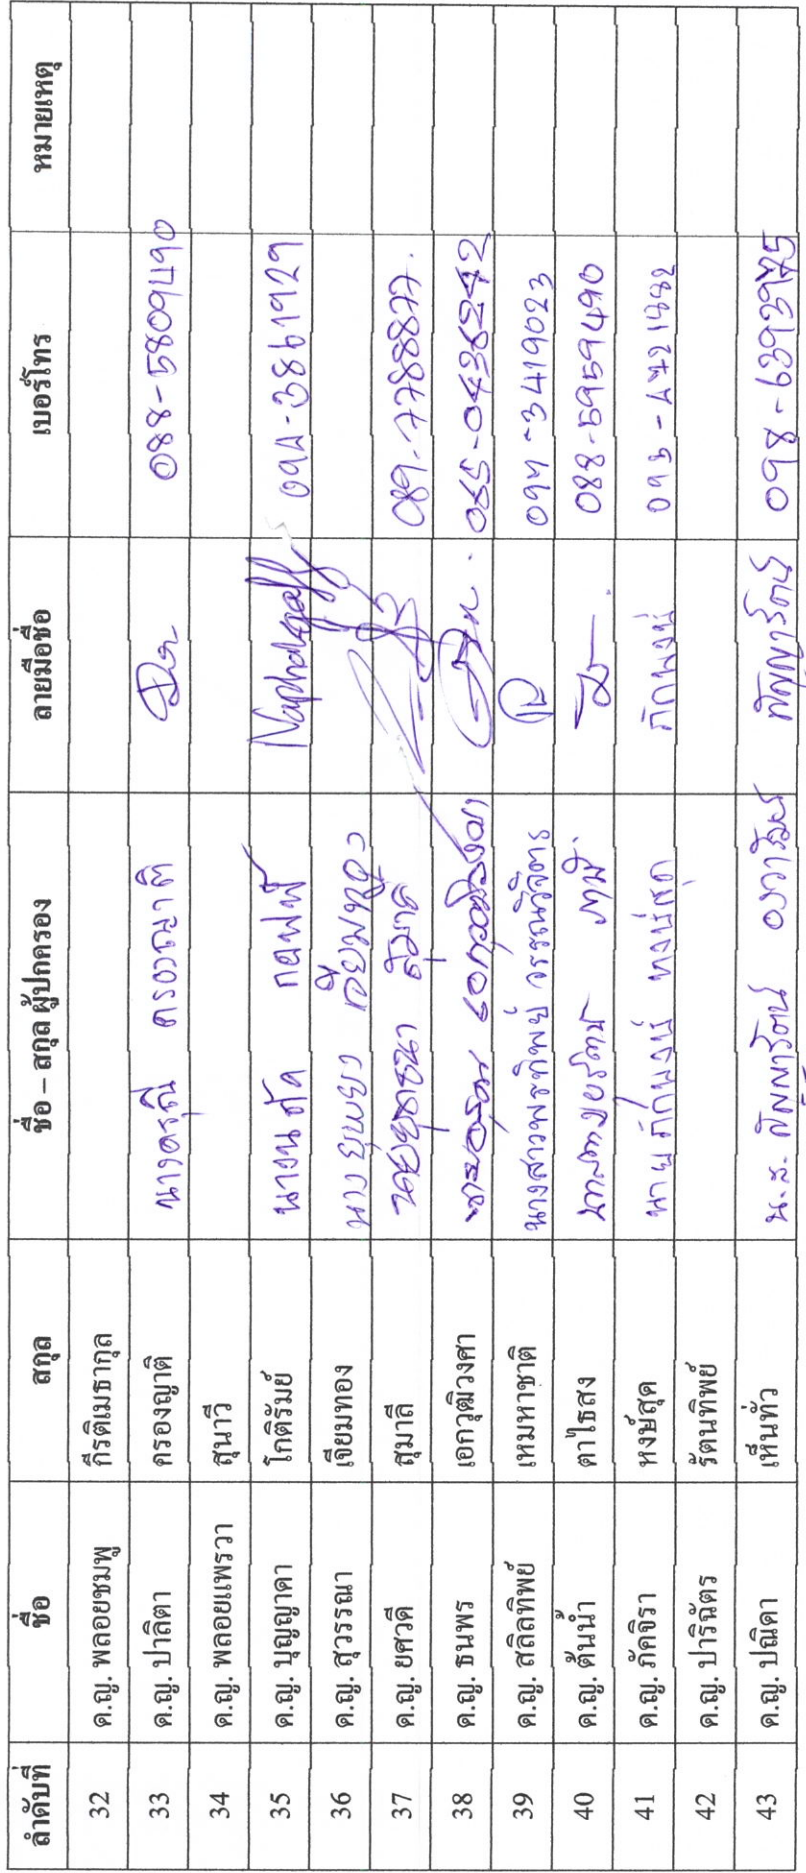 ลำดับที่ ชื่อ สกุล ชื่อ – สกุล ผู้ปกครอง ลายมือชื่อ เบอร์โทร หมายเหตุ
32 ค.ญ. พลอยชมพู กีรติเมธากุล
33 ค.ญ. ปาลิตา ครองญาติ นางดรุณี ครองญาติ 088-5809490
34 ค.ญ. พลอยแพรวา สุนาวี
35 ค.ญ. บุญญาคา โกติรัมย์ 094-3861929
36 ค.ญ. สุวรรณา เจียมทอง นาง ยุพยง เจียมทอง
37 ค.ญ. ยศวดี สุมาลี นายยุทธนา สุมาลี 089-7788877.
38 ค.ญ. ธนพร เอกวุฒิวงศา เอกวุฒิวงศา 065-0438242
39 ค.ญ. สลิลทิพย์ เหมหาชาติ นางสาวพรทิพย์ วรรณวิจิตร 094-3419023
40 ค.ญ. ต้นน้ำ ตาไธสง 088-5959490
41 ค.ญ. ภัคจิรา หงษ์สุค นาย ภักพงษ์ หงษ์สุด ภักพงษ์
42 ค.ญ. ปาริฉัตร รัตนทิพย์
43 ค.ญ. ปณิดา เห็นทั่ว น.ส. กัญญารัตน์ กัญญารัตน์